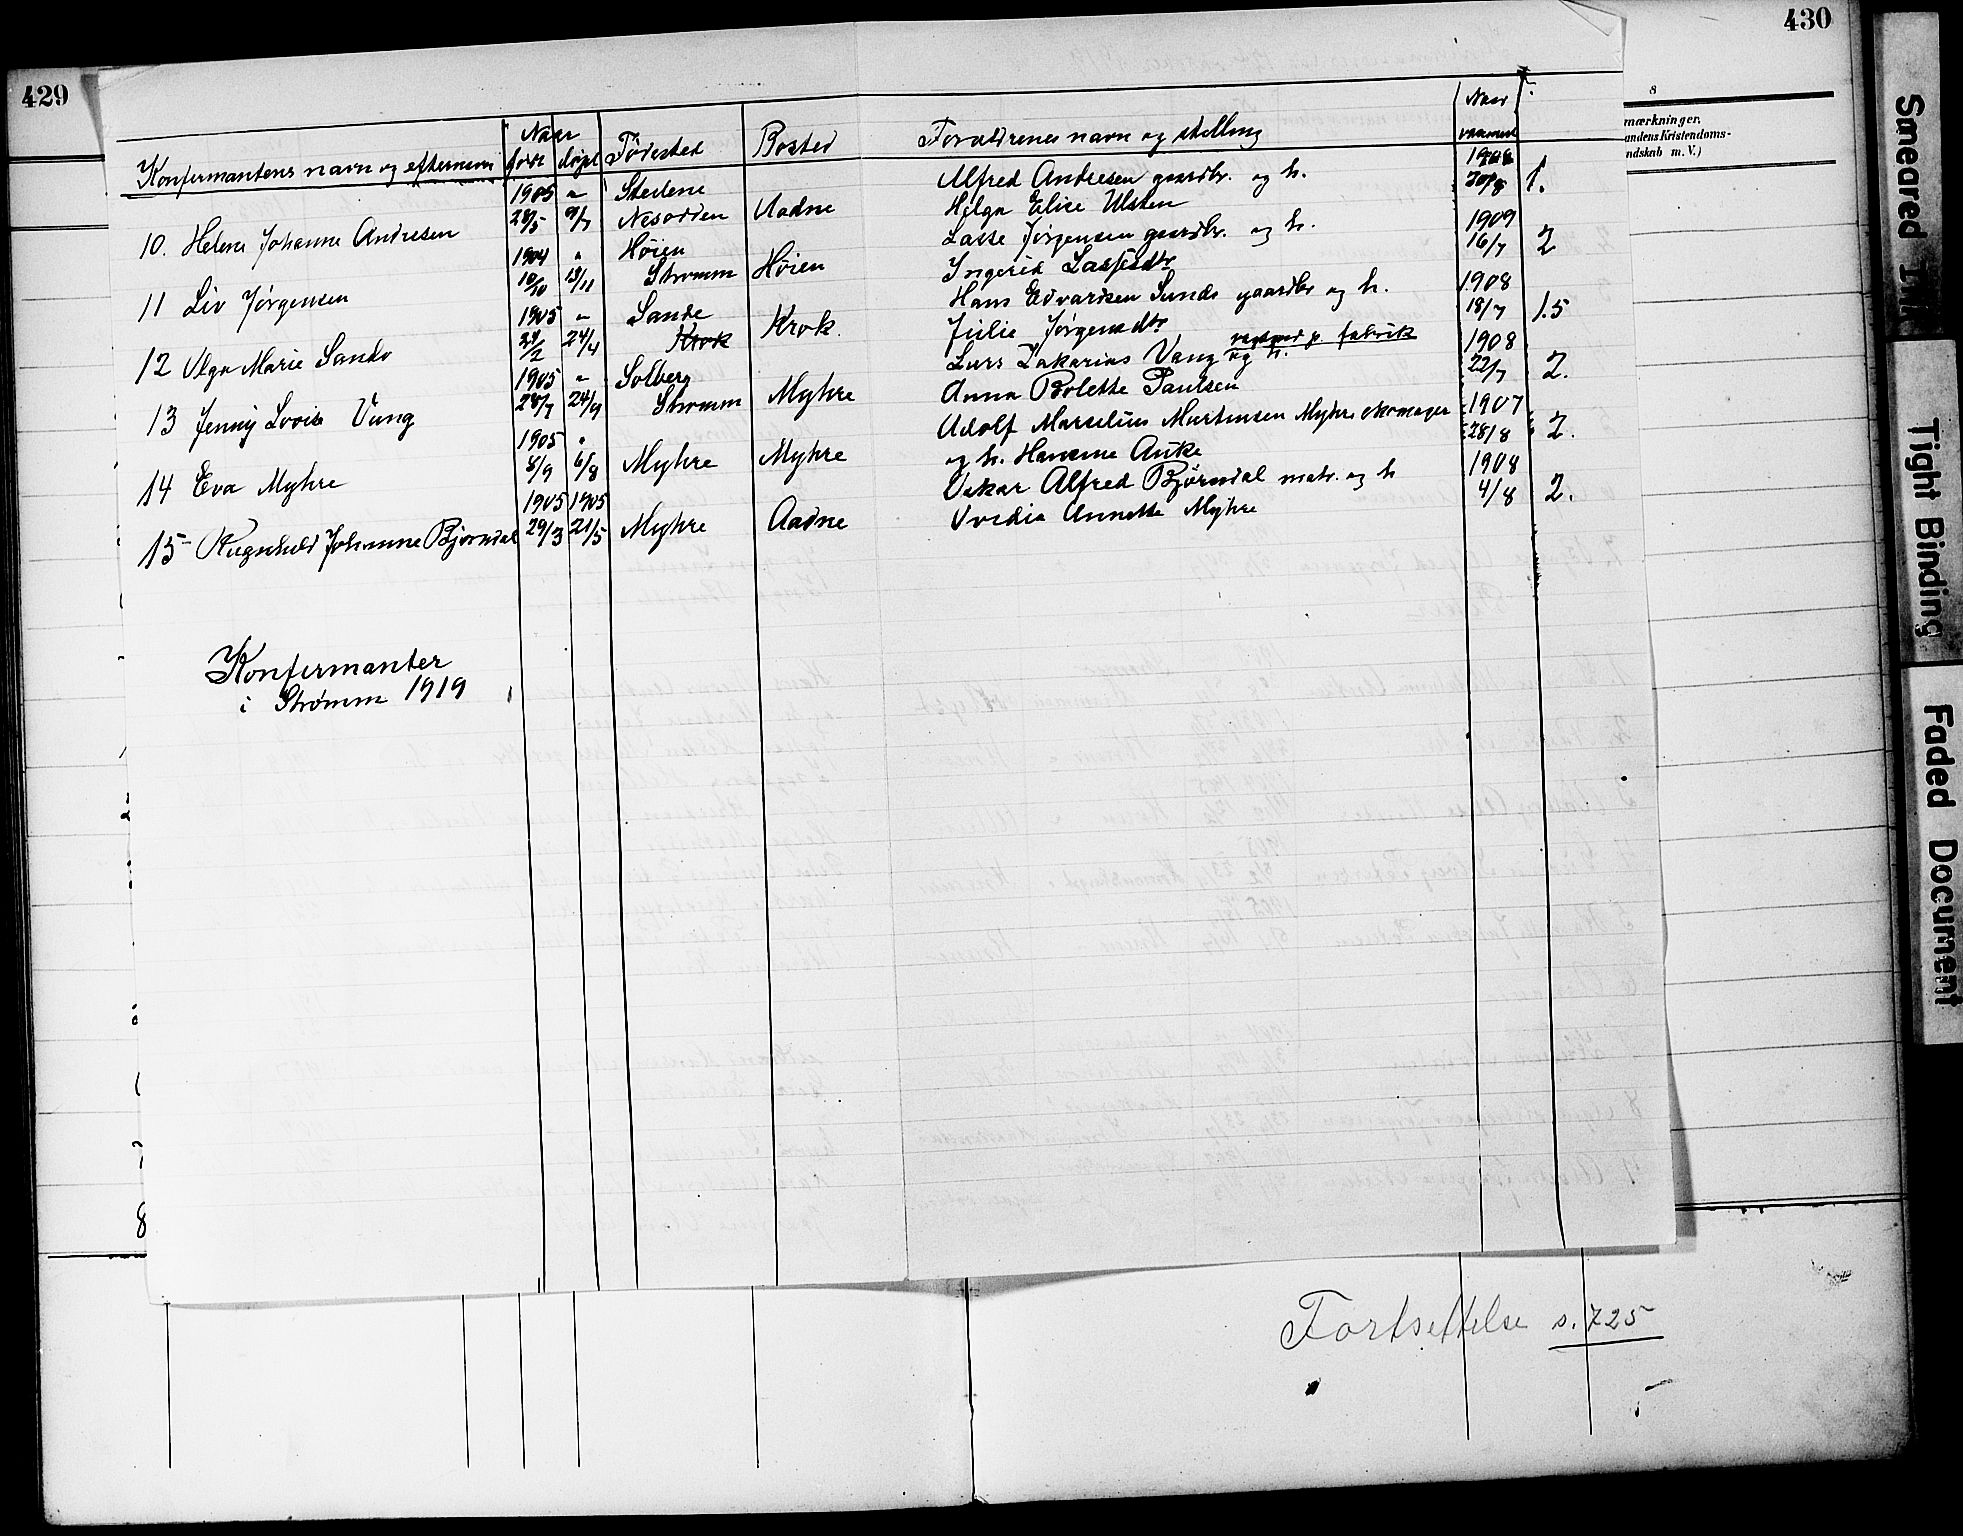 429
430
8
mærkninger.
andens Kristendoms-
ndskab m. V.)
Konfirmantens navn og efternavn Naar født døpt Fødested Bosted Forældrenes navn og stilling Naar
1905 " Stedene Alfred Andresen gaardbr. og h. 1908
10. Helene Johanne Andresen 28/5 9/7 Nesodden Aadne Helga Elise Ulsten 20/8 1.
1904 " Høien Lasse Jørgensen gaardbr. og h. 1909
11 Liv Jørgensen 10/10 13/11 Strømm Høien Ingerid Lassesdtr 16/7 2
1905 " Sande Hans Edvardsen Sande gaardbr og h. 1908
12 Olga Marie Sande 24/2 24/4 Krok Krok. Julie Jørgensdtr 18/7 1.5
1905 " Solberg Lars Zakarias Vang og h. fabrik 1908
13 Jenny Lovise Vang 28/7 24/9 Strømm Myhre Anna Bolette Paulsen 22/7 2.
1905 " Adolf Marselius Martinsen Myhre skomager 1907
14 Eva Myhre 8/9 6/8 Myhre Myhre og h. Hansine Auke 28/8 2.
1905 1905 Oskar Alfred Bjørndal matr. og h 1908
15 Ragnhild Johanne Bjørndal 29/3 21/5 Myhre Aadne Ovidia Annette Myhre 4/8 2.
Konfirmanter
i Strømm 1919
8
Fortsettelse s. 725
Smeared Ink
Tight Binding
Faded Document